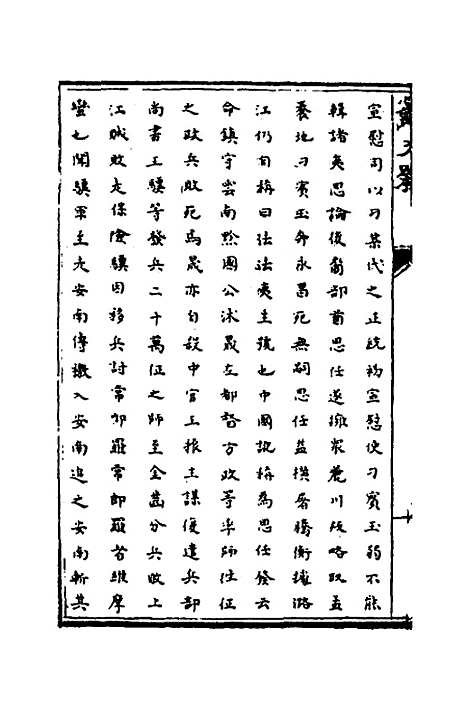 宣慰司以刁某代之正統初宣慰使刁賓玉弱不能
輯諸夷思論後裔部酋思任遂擁衆麓川叛略取孟
養地刁賓玉奔永昌死無嗣思任益橫屠騰衝據潞
江仍自稱曰法法夷王號也中國訛稱爲思任發云
命鎮守雲南黔國公沐晟左都督方政等率師往征
之政兵敗死焉晟亦自殺中官王振主謀復遣兵部
尚書王驥等發兵二十萬征之師至金齒分兵敗上
江賊敗走保險驥因移兵討常郎羅常郎羅者維摩
蠻也聞驥軍至走安南傳檄入安南追之安南斬其